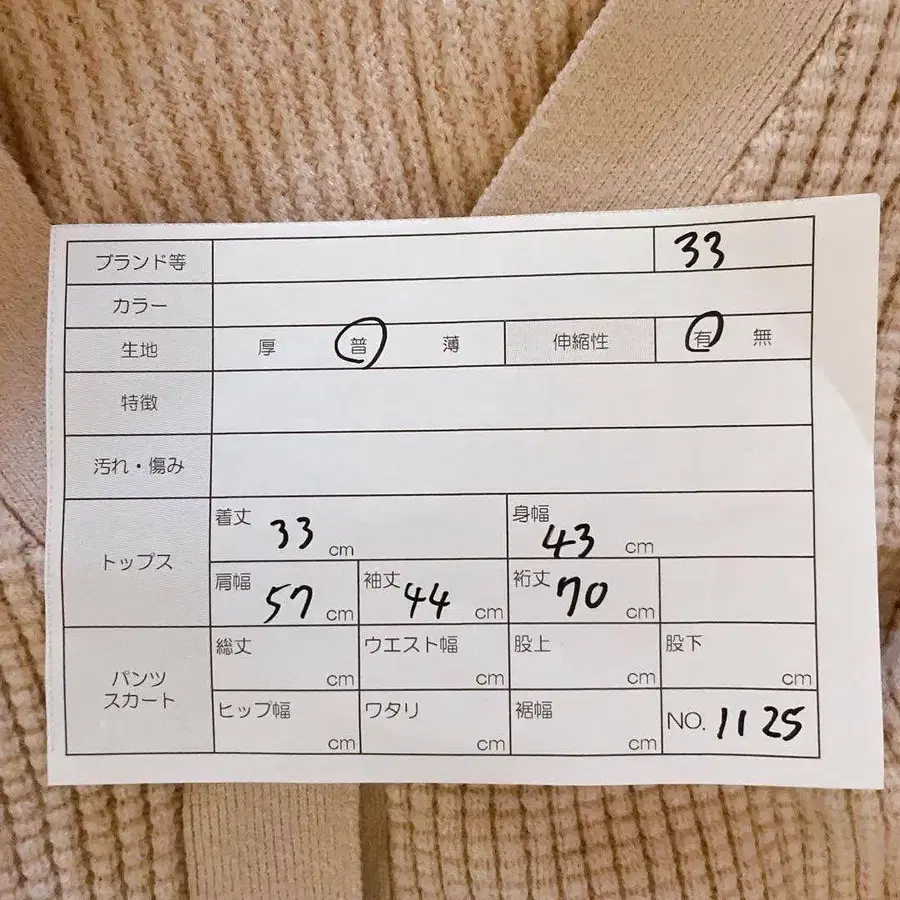 ブランド等 33
カラー
生地 厚 普 薄 伸縮性 有 無
特徴
汚れ・傷み
トップス
着丈 33 cm 身幅 43 cm
肩幅 57 cm 袖丈 44 cm 裄丈 70 cm
パンツ
スカート
総丈 cm ウエスト幅 cm 股上 cm 股下 cm
ヒップ幅 cm ワタリ cm 裾幅 cm NO. 1125